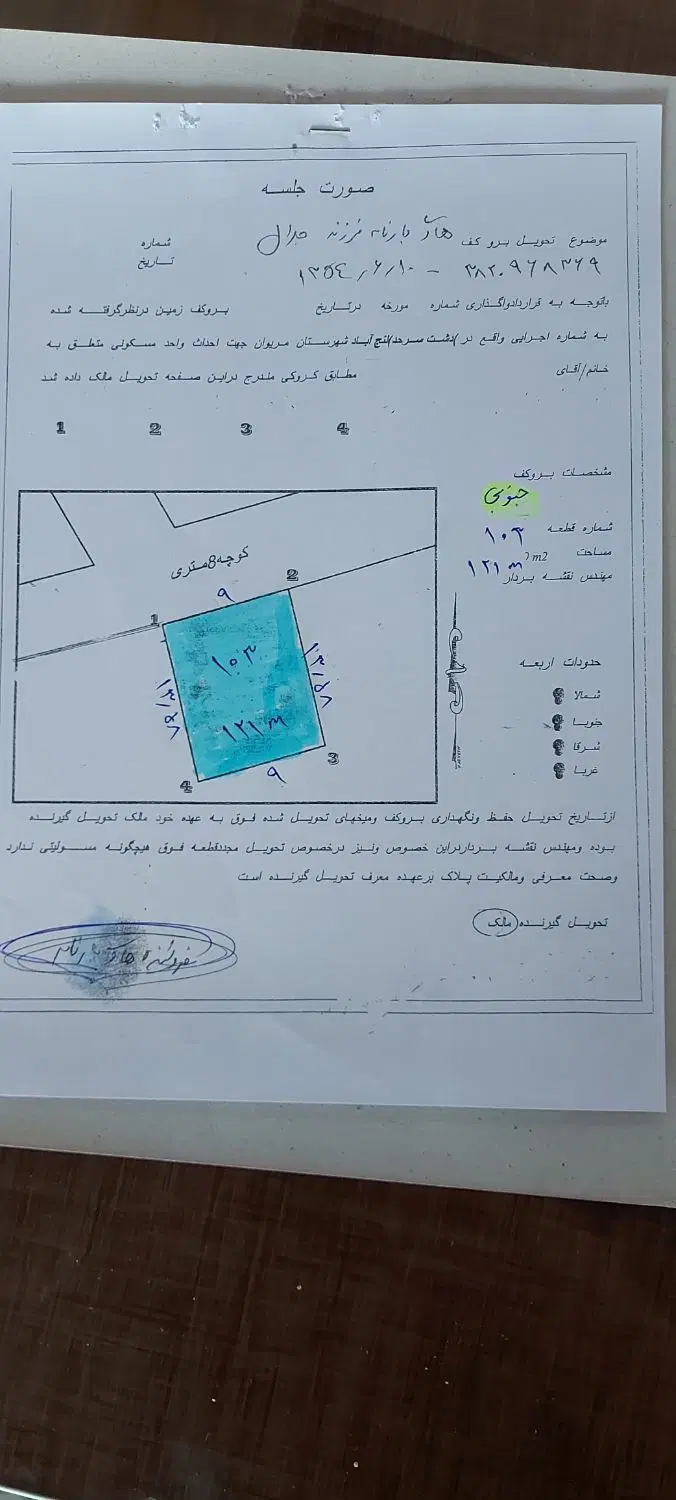 صورت جلسه
موضوع تحویل بروکف فرزند جلال
شماره
تاریخ
۳۸۲۰۹۶۸۳۶۹ - ۱۳۵۴٫۶٫۱۰
باتوجه به قراردادواگذاری شماره مورخه درتاریخ بروکف زمین درنظرگرفته شده
به شماره اجرایی واقع در )دشت سرحد)لنج آباد شهرستان مریوان جهت احداث واحد مسکونی متعلق به
خانم/آقای مطابق کروکی مندرج دراین صفحه تحویل مالک داده شد
1 2 3 4
مشخصات بروکف
جنوبی
شماره قطعه ۱۰۳
مساحت m2
۱۲۱ m²
مهندس نقشه بردار
حدودات اربعه
شمالا
جنوبا
شرقا
غربا
کوچه 8متری
1
۹
2
۱۰۳
۱۳٫۵۸
۱۳٫۵۷
۱۲۱ m
3
۹
4
ازتاریخ تحویل حفظ ونگهداری بروکف ومیخهای تحویل شده فوق به عهده خود مالک تحویل گیرنده
بوده ومهندس نقشه برداردراین خصوص ونیز درخصوص تحویل مجددقطعه فوق هیچگونه مسولیتی ندارد
وصحت معرفی ومالکیت پلاک برعهده معرف تحویل گیرنده است
تحویل گیرنده(مالک)
فروشنده